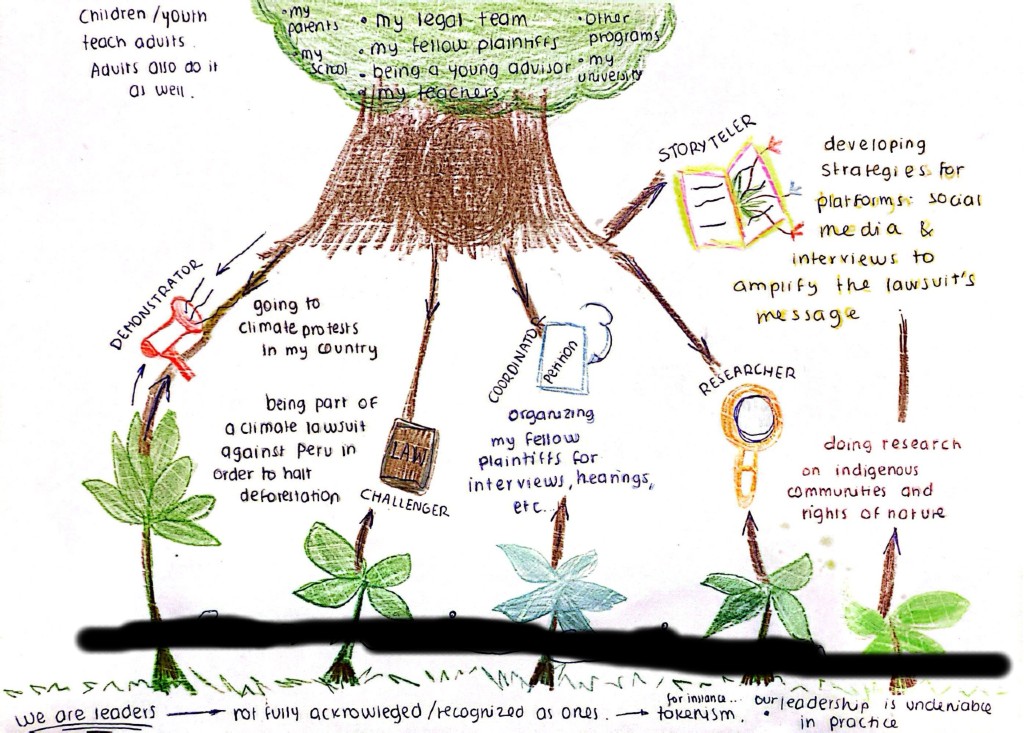 Children / youth
teach adults.
Adults also do it
as well.
• my
parents
• my
school
• my legal team
• my fellow plaintiffs
• being a young advisor
• my teachers
• other
programs
• my
university
STORYTELER
developing
strategies for
platforms: social
media &
interviews to
amplify the lawsuit's
message
DEMONSTRATOR
going to
climate protests
in my country
being part of
a climate lawsuit
against Peru in
order to halt
deforestation
LAW
CHALLENGER
COORDINATO
Petition
organizing
my fellow
plaintiffs for
interviews, hearings,
etc...
RESEARCHER
doing research
on indigenous
communities and
rights of nature
we are leaders → not fully acknowledged / recognized as ones. → for instance...
tokenism.
• our leadership is undeniable
in practice